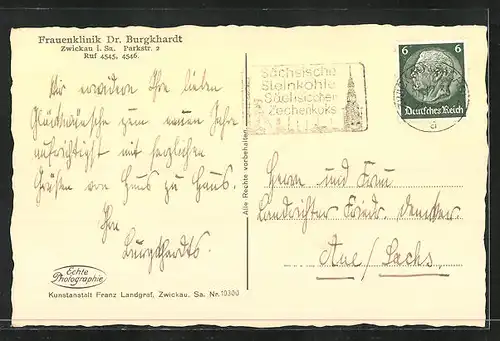 Frauenklinik Dr. Burgkhardt
Zwickau i. Sa. Parkstr. 2
Ruf 4545, 4546.
Wir erwidern Ihre lieben
Glückwünsche zum neuen Jahre
aufrichtigst mit herzlichen
Grüßen von Haus zu Haus.
Ihre
Burgkhardts.
Echte
Photographie
Kunstanstalt Franz Landgraf, Zwickau, Sa. Nr. 10300
Alle Rechte vorbehalten
Sächsische
Steinkohle
Sächsischer
Zechenkoks
6 6
Deutsches Reich
Herrn und Frau
Landrichter Friedr.
Aue/Sachs.